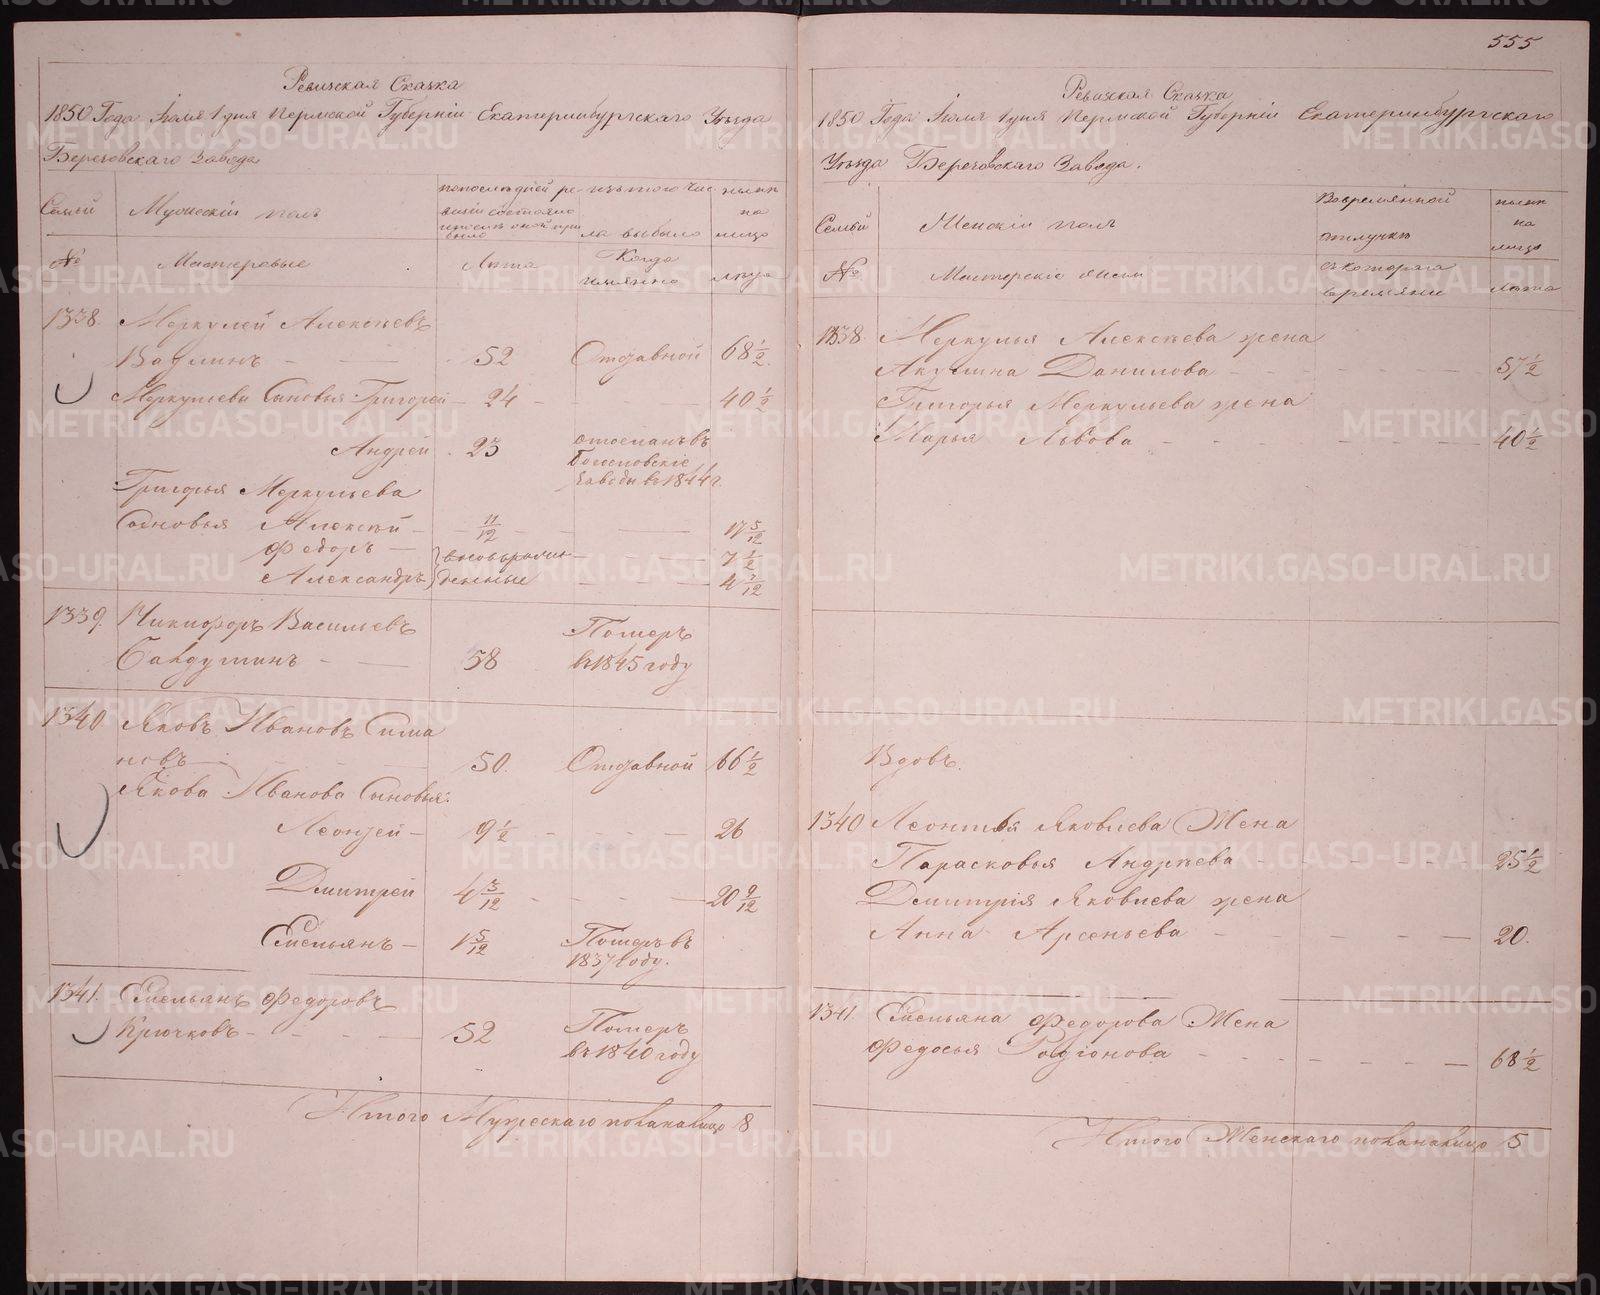 555
Ревизская Сказка
1850 Года Iюля 1 дня Пермской Губернiи Екатеринбургскаго Уѣзда
Березовскаго Завода
Семьи
Мужескiй полъ
по последней ре-
визiи состояло
и после оной при
было
изъ того чис
ла выбыло
ныне
на
лицо
№
Мастеровые
Лѣта
Когда
имянно
лѣта
1338. Меркулей Алексѣевъ
Вавлинъ - 52 Отставной 68 1/2
Меркульева Сыновья Григорей - 24 - 40 1/2
Андрей 23 отосланъ въ
Богословскiе
заводы въ 1844 г.
Григорья Меркульева
Сыновья Алексѣй - 11/12 - 17 5/12
Федоръ - вновърожд 7 1/2
Александръ денные 4 7/12
1339. Никифоръ Васильевъ
58
Померъ
въ 1845 году
1340 Яковъ Ивановъ Сима
новъ - 50. Отставной 66 1/2
Якова Иванова Сыновья:
Леонтей - 9 1/2 - 26
Дмитрей 4 3/12 - 20 9/12
Емельянъ - 1 5/12 Померъ въ
1837 году.
1341. Емельянъ Федоровъ
Крючковъ - 52 Померъ
въ 1840 году
Итого Мужескаго пола налицо 8
Ревизская Сказка
1850 Года Iюля 1 дня Пермской Губернiи Екатеринбургскаго
Уѣзда Березовскаго Завода.
Семьи
Женскiй полъ
Во временной
отлучкѣ
ныне
на
лицо
№
Мастерскiе жены
съ котораго
времяни
лѣта
1338. Меркулья Алексѣева жена
Акулина Данилова - 57 1/2
Григорья Меркульева жена
Марья Львова - 40 1/2
Вдовъ.
1340 Леонтья Яковлева Жена
Парасковья Андрѣева - 25 1/2
Дмитрiя Яковлева жена
Анна Арсеньева - 20.
1341. Емельяна Федорова Жена
Федосья Родiонова - 68 1/2
Итого Женскаго пола налицо 5
METRIKI.GASO-URAL.RU